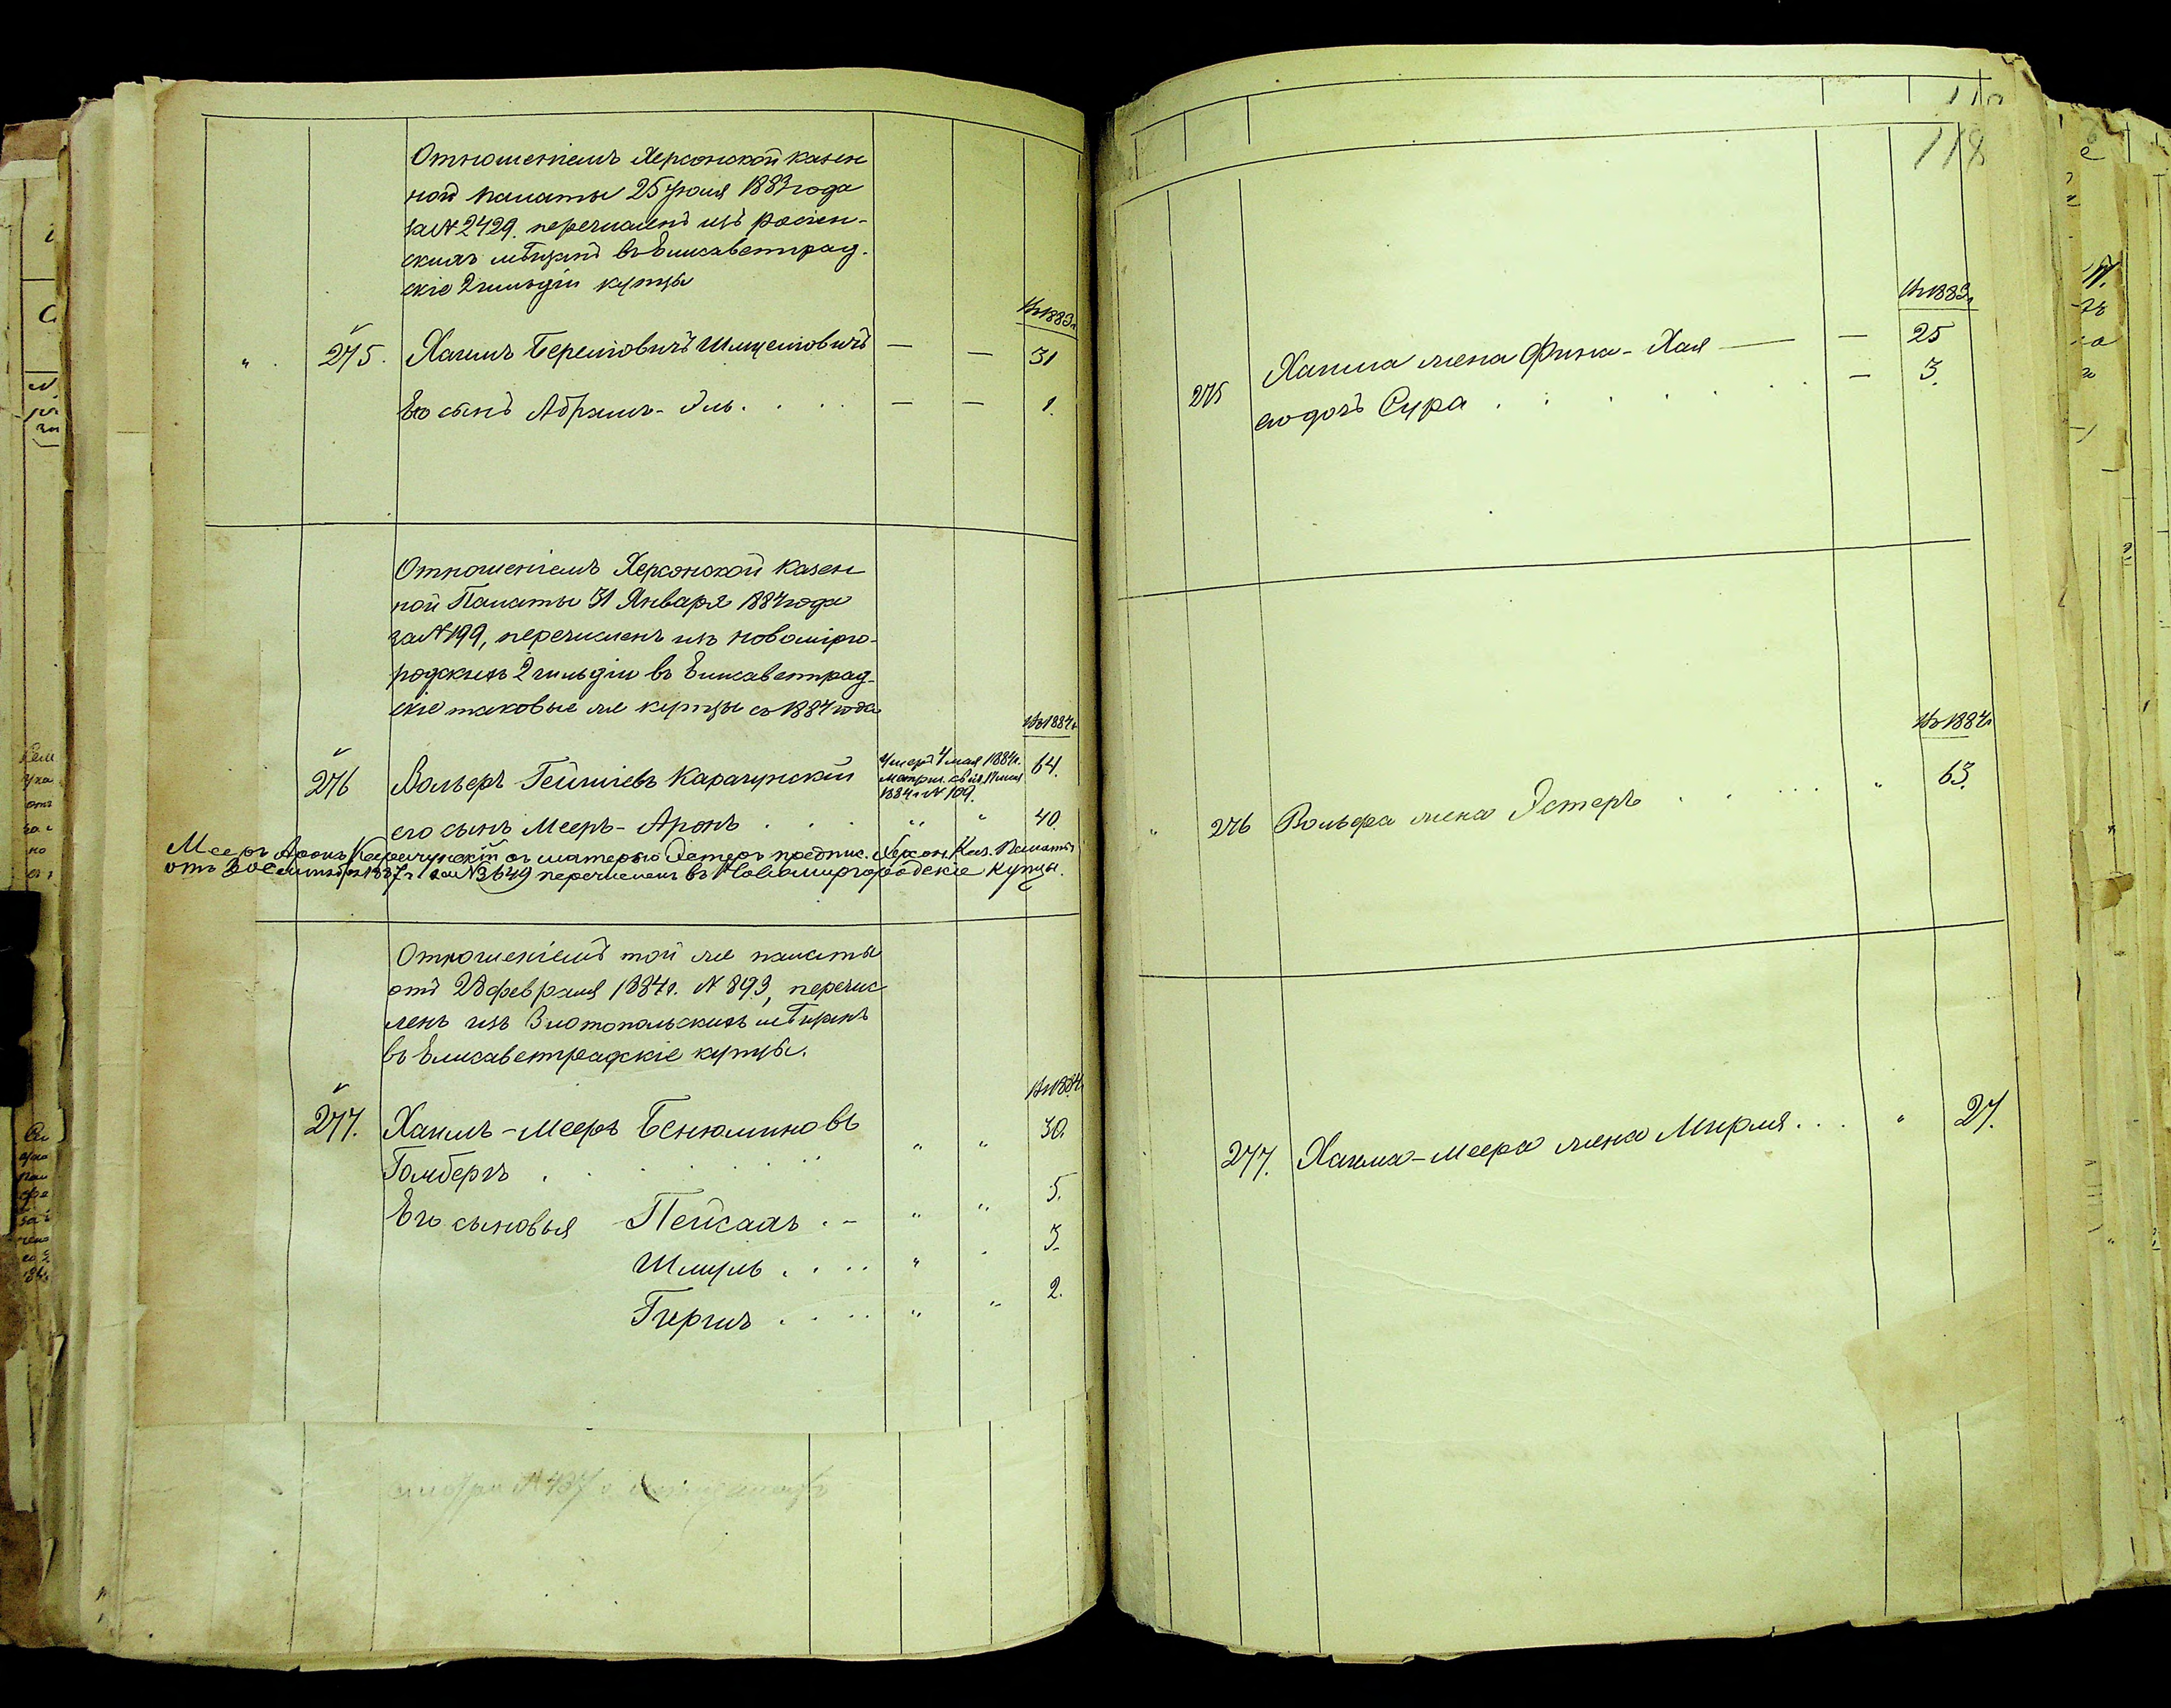 Отношеніемъ Херсонской казен
ной палаты 25 Іюля 1883 года
за № 2429. перечисленъ изъ россіен-
скихъ мѣщанъ въ Елисаветград-
скіе 2 гильдіи купцы
Въ 1883 г.
275. Хаимъ Берковичъ Шмуеловичъ — — 31
Его сынъ Абрамъ-Эль. . . . — — 1.
Отношеніемъ Херсонской казен
ной Палаты 31 Января 1884 года
за № 199, перечисленъ изъ новомирго-
родскихъ 2 гильдіи въ Елисаветград-
скіе таковые же купцы съ 1884 года
Въ 1884 г.
276 Вольфъ Гейниевъ Карачунскій 64.
Умеръ 4 мая 1884 г.
метрич. свид. 17 мая
1884 г. № 109.
его сынъ Мееръ-Аронъ . . . " " 40.
Мееръ Аронъ Карачунскій съ матерью Эстеръ предпис. Херсон. Каз. Палаты
отъ 30 Сентября 1887 г. за № 3649 перечисленъ въ Новомиргородскіе Купцы.
Отношеніемъ той же палаты
отъ 28 февраля 1884 г. № 893, перечис
ленъ изъ Златопольскихъ мѣщанъ
въ Елисаветградскіе купцы.
Въ 1884
277. Хаимъ-Мееръ Бенюминовъ
Гомбергъ . . . . . " " 30.
Его сыновья Пейсахъ . - " " 5.
Шмуль . . . . " " 3.
Гиршъ . . . . " " 2.
118
Въ 1883 г.
275 Хаима жена Фина-Хая — — 25
его дочь Сура . . . . . . — 3.
Въ 1884 г.
" 276 Вольфа жена Эстеръ . . . . . " 63.
277. Хаима-Меера жена Мирля . . . " 27.